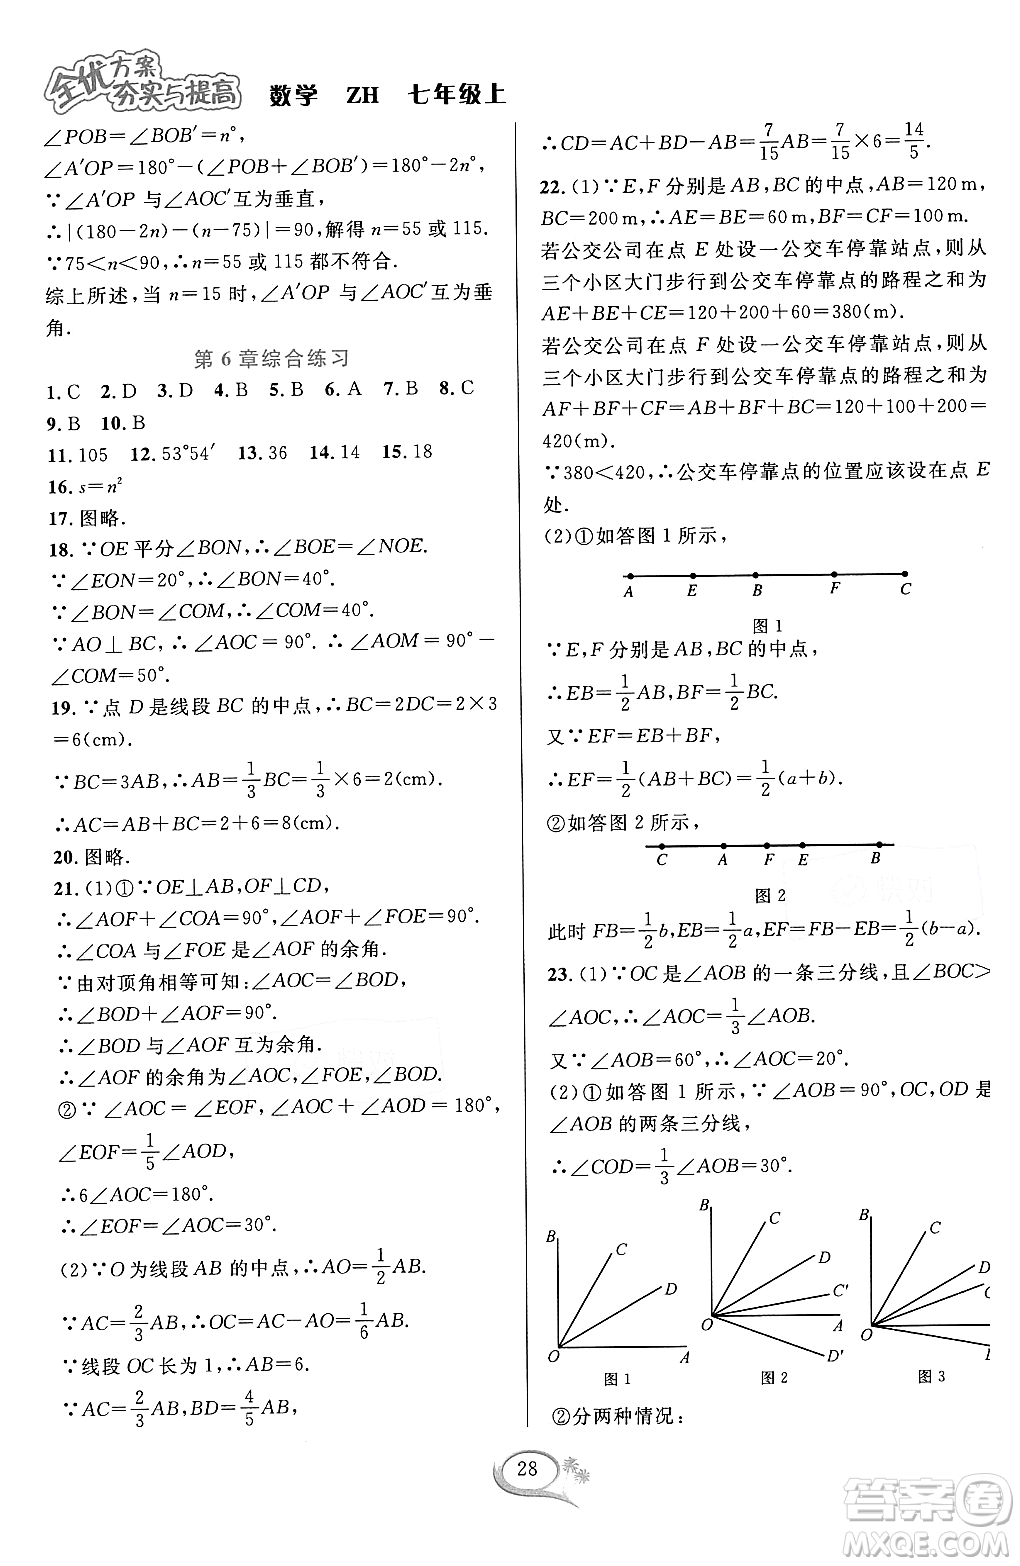 全优方案
夯实与提高 数学 ZH 七年级上
∠POB=∠BOB′=n°,
∠A′OP=180°-(∠POB+∠BOB′)=180°-2n°,
∵∠A′OP 与∠AOC′互为垂直,
∴|(180-2n)-(n-75)|=90,解得 n=55 或 115.
∵75<n<90,∴n=55 或 115 都不符合.
综上所述,当 n=15 时,∠A′OP 与∠AOC′互为垂
角.
第 6 章综合练习
1.C 2.D 3.D 4.B 5.B 6.A 7.B 8.C
9.B 10.B
11.105 12.53°54′ 13.36 14.14 15.18
16.s=n²
17.图略.
18.∵OE 平分∠BON,∴∠BOE=∠NOE.
∵∠EON=20°,∴∠BON=40°.
∵∠BON=∠COM,∴∠COM=40°.
∵AO⊥BC,∴∠AOC=90°.∴∠AOM=90°-
∠COM=50°.
19.∵点 D 是线段 BC 的中点,∴BC=2DC=2×3
=6(cm).
∵BC=3AB,∴AB=1/3BC=1/3×6=2(cm).
∴AC=AB+BC=2+6=8(cm).
20.图略.
21.(1)①∵OE⊥AB,OF⊥CD,
∴∠AOF+∠COA=90°,∠AOF+∠FOE=90°.
∴∠COA 与∠FOE 是∠AOF 的余角.
∵由对顶角相等可知:∠AOC=∠BOD,
∴∠BOD+∠AOF=90°.
∴∠BOD 与∠AOF 互为余角.
∴∠AOF 的余角为∠AOC,∠FOE,∠BOD.
②∵∠AOC=∠EOF,∠AOC+∠AOD=180°,
∠EOF=1/5∠AOD,
∴6∠AOC=180°.
∴∠EOF=∠AOC=30°.
(2)∵O 为线段 AB 的中点,∴AO=1/2AB.
∵AC=2/3AB,∴OC=AC-AO=1/6AB.
∵线段 OC 长为 1,∴AB=6.
∵AC=2/3AB,BD=4/5AB,
∴CD=AC+BD-AB=7/15AB=7/15×6=14/5.
22.(1)∵E,F 分别是 AB,BC 的中点,AB=120 m,
BC=200 m,∴AE=BE=60 m,BF=CF=100 m.
若公交公司在点 E 处设一公交车停靠站点,则从
三个小区大门步行到公交车停靠点的路程之和为
AE+BE+CE=120+200+60=380(m)
若公交公司在点 F 处设一公交车停靠站点,则从
三个小区大门步行到公交车停靠点的路程之和为
AF+BF+CF=AB+BF+BC=120+100+200=
420(m).
∵380<420,∴公交车停靠点的位置应该设在点 E
处.
(2)①如答图 1 所示,
A E B F C
图 1
∵E,F 分别是 AB,BC 的中点,
∴EB=1/2AB,BF=1/2BC.
又∵EF=EB+BF,
∴EF=1/2(AB+BC)=1/2(a+b).
②如答图 2 所示,
C A F E B
图 2
此时 FB=1/2b,EB=1/2a,EF=FB-EB=1/2(b-a).
23.(1)∵OC 是∠AOB 的一条三分线,且∠BOC>
∠AOC,∴∠AOC=1/3∠AOB.
又∵∠AOB=60°,∴∠AOC=20°.
(2)①如答图 1 所示,∵∠AOB=90°,OC,OD 是
∠AOB 的两条三分线,
∴∠COD=1/3∠AOB=30°.
B C D O A
图 1
B C D C′ O A D′
图 2
B C D O
图 3
②分两种情况:
28
答案圈
MXQE.COM